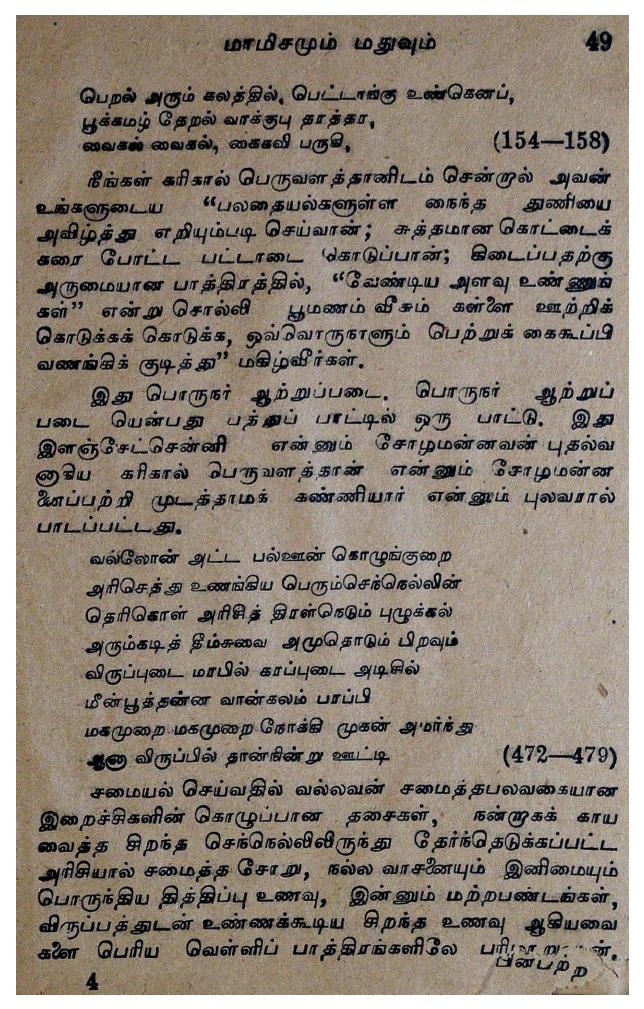 மாமிசமும் மதுவும் 49
பெறல் அரும் கலத்தில், பெட்டாங்கு உண்கெனப்,
பூக்கமழ் தேறல் வாக்குபு தரத்தர,
வைகல் வைகல், கைகவி பருகி, (154—158)
நீங்கள் கரிகால் பெருவளத்தானிடம் சென்றால் அவன்
உங்களுடைய “பலதையல்களுள்ள நைந்த துணியை
அவிழ்த்து எறியும்படி செய்வான்; சுத்தமான கொட்டைக்
கரை போட்ட பட்டாடை கொடுப்பான்; கிடைப்பதற்கு
அருமையான பாத்திரத்தில், “வேண்டிய அளவு உண்ணுங்
கள்” என்று சொல்லி பூமணம் வீசும் கள்ளை ஊற்றிக்
கொடுக்கக் கொடுக்க, ஒவ்வொருநாளும் பெற்றுக் கைகூப்பி
வணங்கிக் குடித்து” மகிழ்வீர்கள்.
இது பொருநர் ஆற்றுப்படை. பொருநர் ஆற்றுப்
படை யென்பது பத்துப் பாட்டில் ஒரு பாட்டு. இது
இளஞ்சேட்சென்னி என்னும் சோழமன்னவன் புதல்வ
னாகிய கரிகால் பெருவளத்தான் என்னும் சோழமன்ன
னைப்பற்றி முடத்தாமக் கண்ணியார் என்னும் புலவரால்
பாடப்பட்டது.
வல்லோன் அட்ட பல்ஊன் கொழுங்குறை
அரிசெத்து உணங்கிய பெரும்செந்நெல்லின்
தெரிகொள் அரிசித் திரள்நெடும் புழுக்கல்
அரும்கடித் தீம்சுவை அமுதொடும் பிறவும்
விருப்புடை மரபில் கரப்புடை அடிசில்
மீன்பூத்தன்ன வான்கலம் பரப்பி
மகமுறை மகமுறை நோக்கி முகன் அமர்ந்து
ஆனா விருப்பில் தான்நின்று ஊட்டி (472—479)
சமையல் செய்வதில் வல்லவன் சமைத்தபலவகையான
இறைச்சிகளின் கொழுப்பான தசைகள், நன்றாகக் காய
வைத்த சிறந்த செந்நெல்லிலிருந்து தேர்ந்தெடுக்கப்பட்ட
அரிசியால் சமைத்த சோறு, நல்ல வாசனையும் இனிமையும்
பொருந்திய தித்திப்பு உணவு, இன்னும் மற்றபண்டங்கள்,
விருப்பத்துடன் உண்ணக்கூடிய சிறந்த உணவு ஆகியவை
களை பெரிய வெள்ளிப் பாத்திரங்களிலே
4